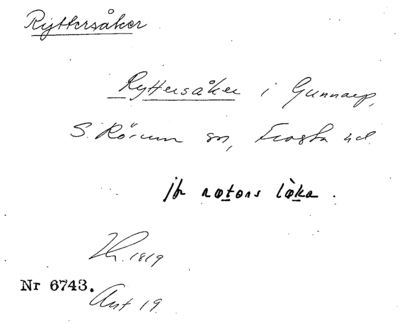 Ryttersåker
Ryttersåker i Gunnarp,
S. Rörum sn, Frosta hd
jfr nætons læka.
1819
Nr 6743.
Ant 19.